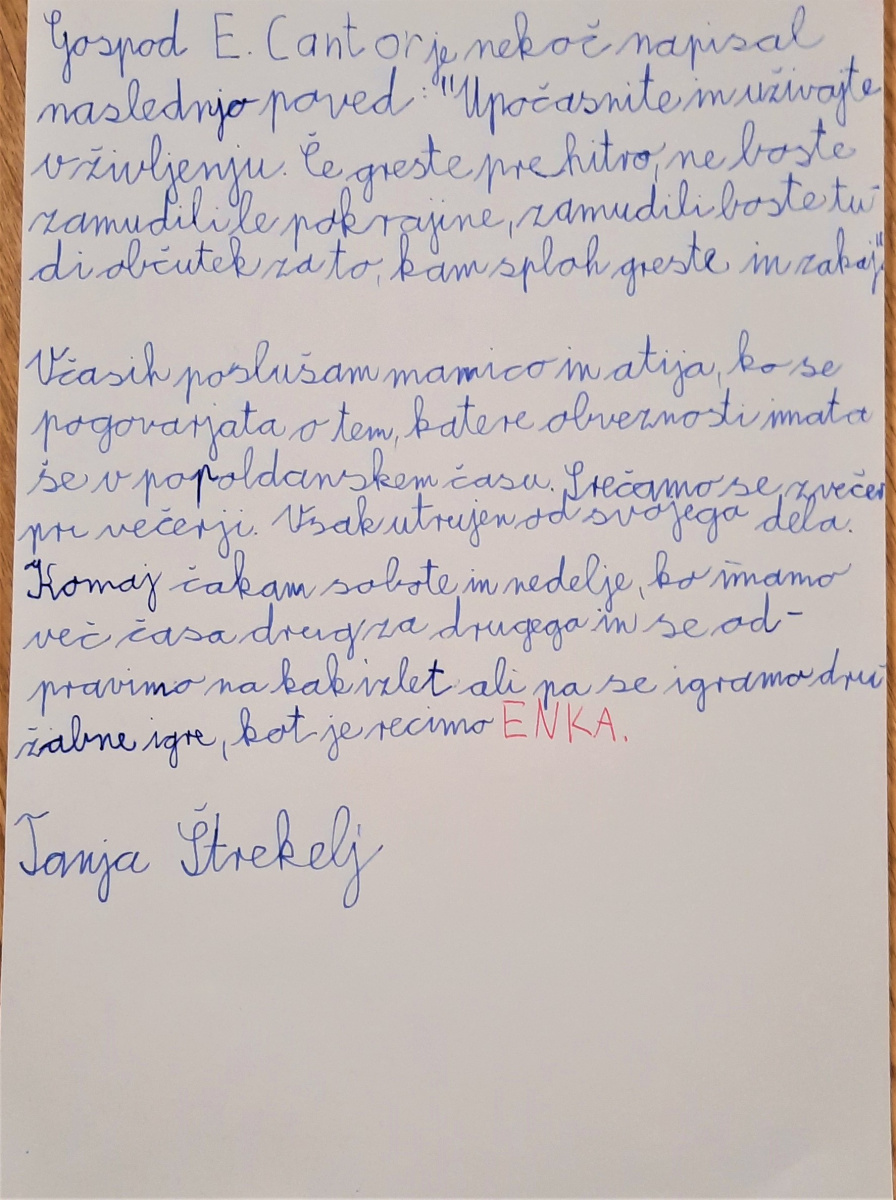 Gospod E. Cantor je nekoč napisal
naslednjo poved: "Upočasnite in uživajte
v življenju. Če greste prehitro, ne boste
zamudili le pokrajine, zamudili boste tu-
di občutek za to, kam sploh greste in zakaj"
Včasih poslušam mamico in atija, ko se
pogovarjata o tem, katere obveznosti imata
še v popoldanskem času. Srečamo se zvečer
pri večerji. Vsak utrujen od svojega dela.
Komaj čakam sobote in nedelje, ko imamo
več časa drug za drugega in se od-
pravimo na kak izlet ali pa se igramo dru-
žabne igre, kot je recimo ENKA.
Tanja Štrekelj